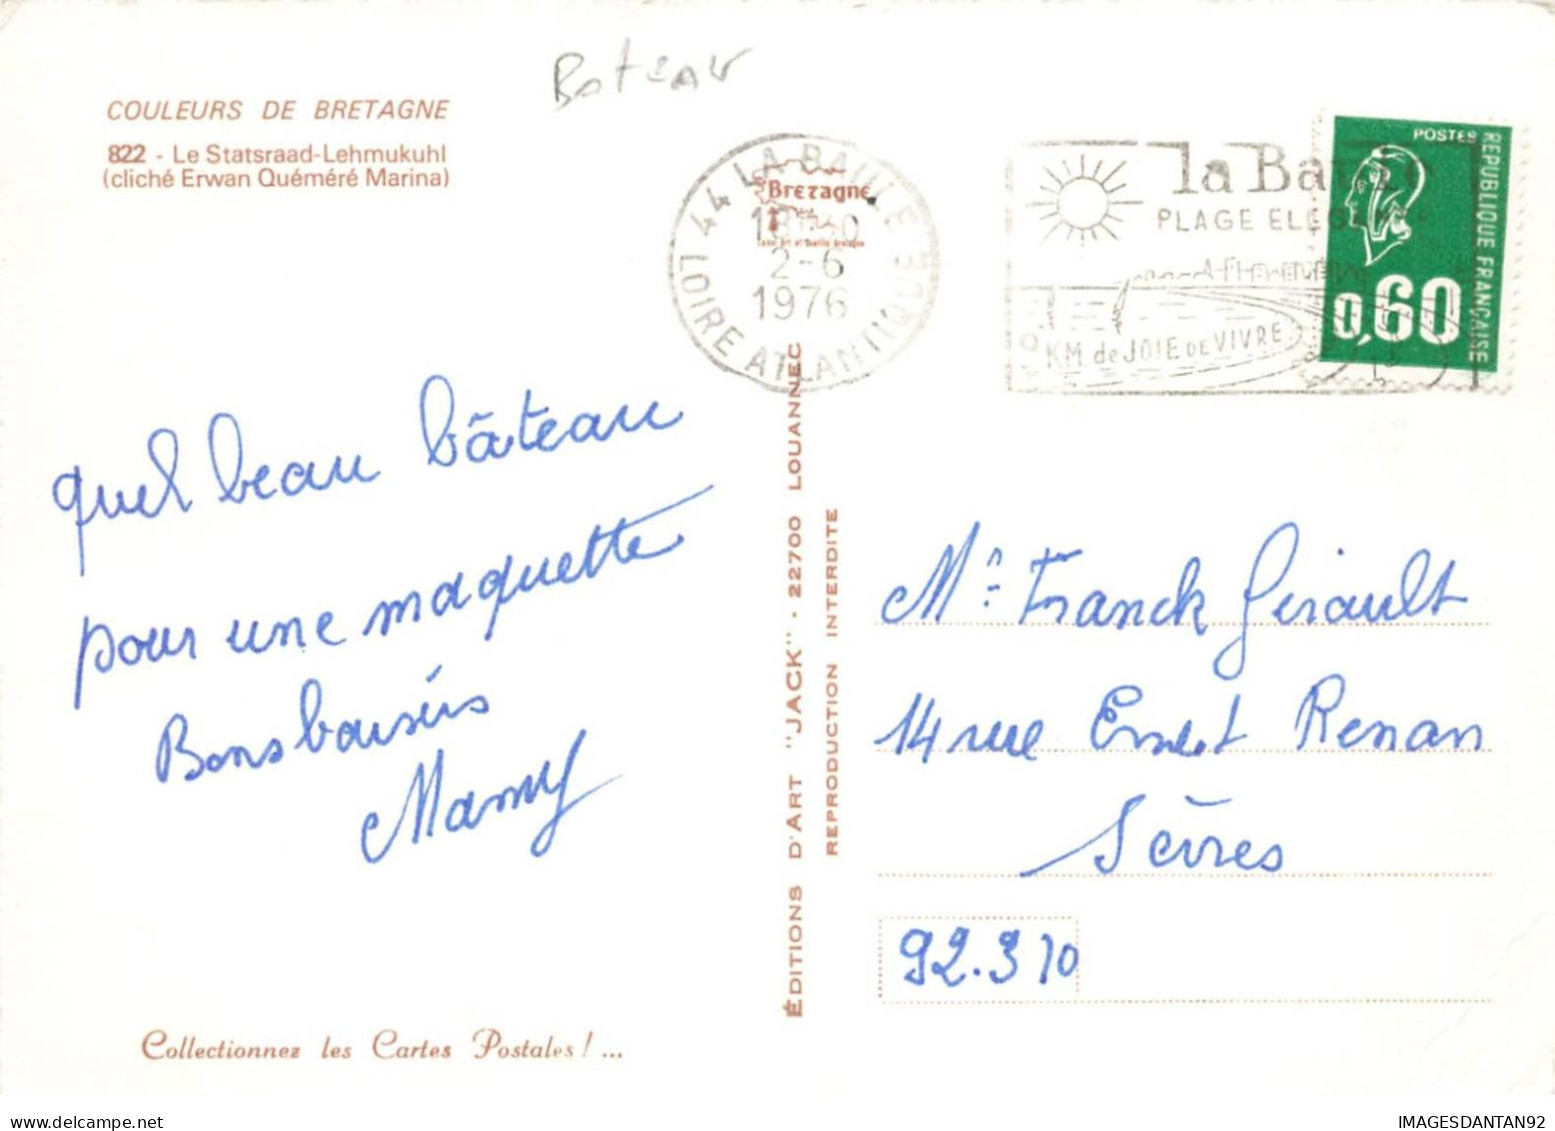 Bateau
COULEURS DE BRETAGNE
822 - Le Statsraad-Lehmukuhl
(cliché Erwan Quéméré Marina)
44 LA BAULE
LOIRE ATLANTIQUE
2-6
1976
Bretagne
la Baule
PLAGE ELEGANTE
KM. de JOIE DE VIVRE
POSTES
REPUBLIQUE FRANÇAISE
0,60
quel beau bâteau
pour une maquette
Bons baisérs
Mamy
ÉDITIONS D'ART "JACK" - 22700 LOUANNEC
REPRODUCTION INTERDITE
Mr Franck Girault
14 rue Ernest Renan
Sèvres
92.310
Collectionnez les Cartes Postales ! ...
IMAGESDANTAN92